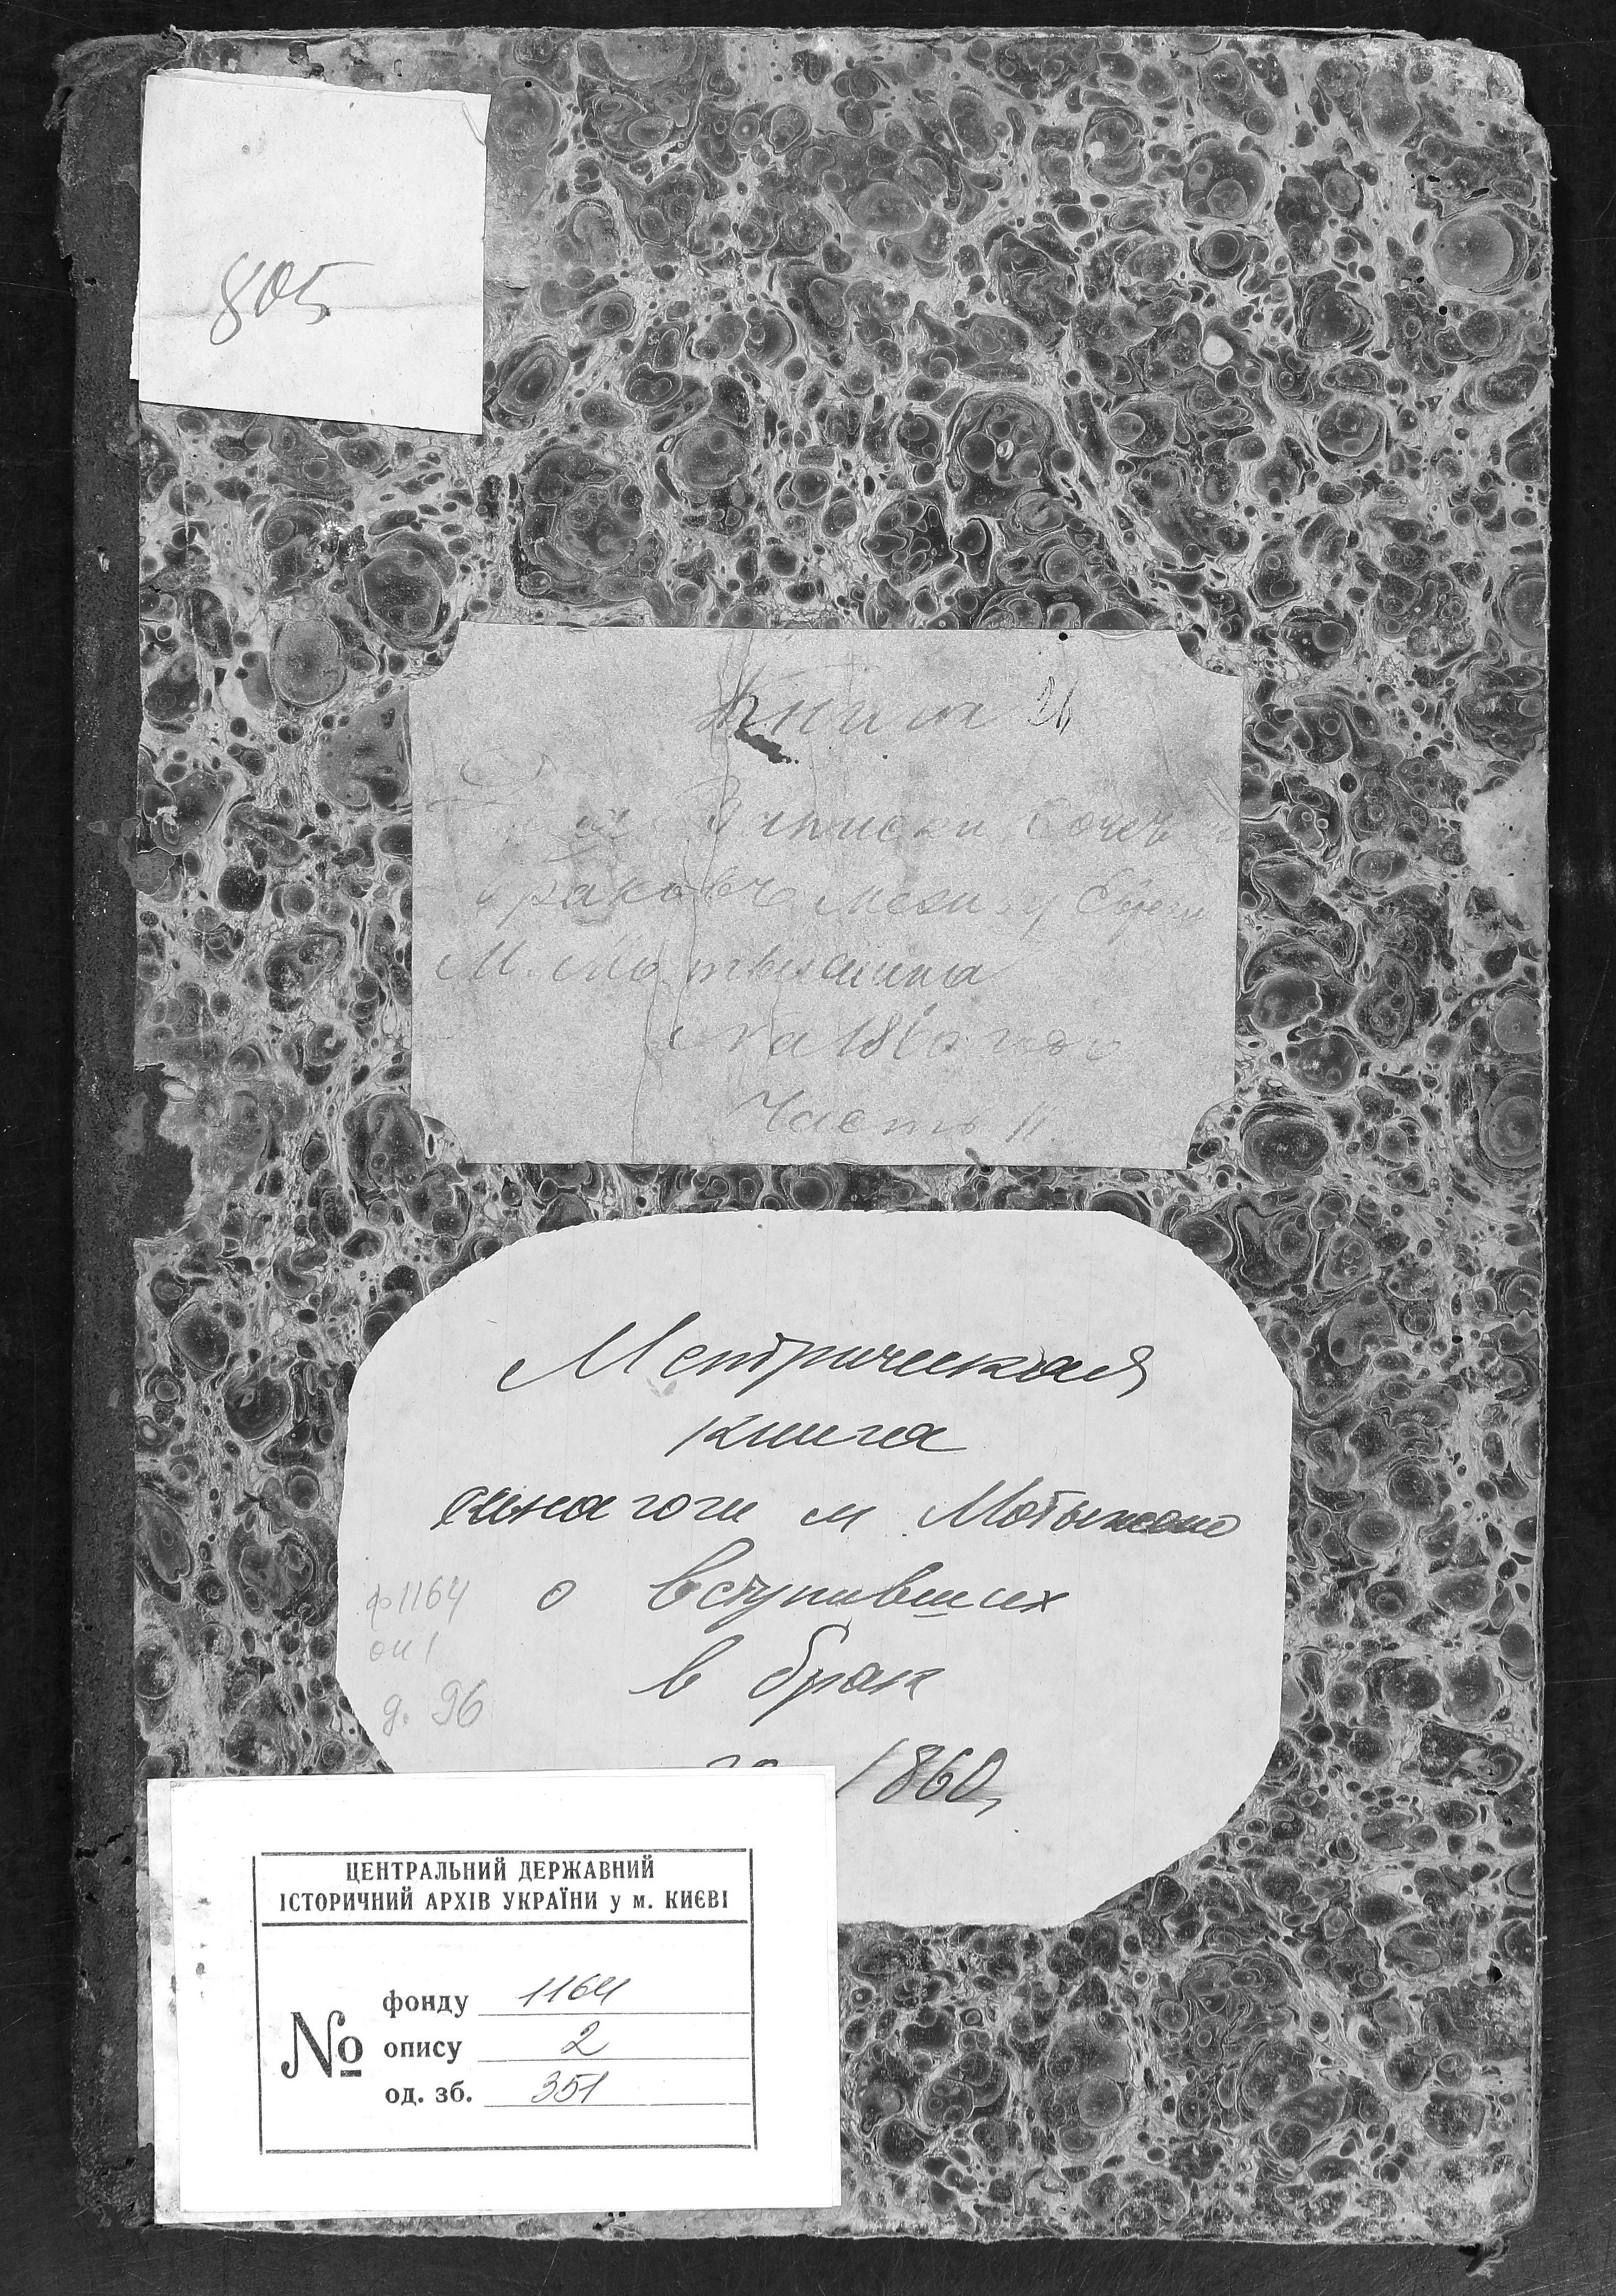 805
Книга
Записки
браковъ между
М. Мотыжина
На 1860 годъ
Часть II.
Метрическая
книга
синагоги м. Мотыжино
о вступивших
в брак
ф 1164
оп 1
д. 96
1860
ЦЕНТРАЛЬНИЙ ДЕРЖАВНИЙ
ІСТОРИЧНИЙ АРХІВ УКРАЇНИ у м. КИЄВІ
№
фонду 1164
опису 2
од. зб. 351